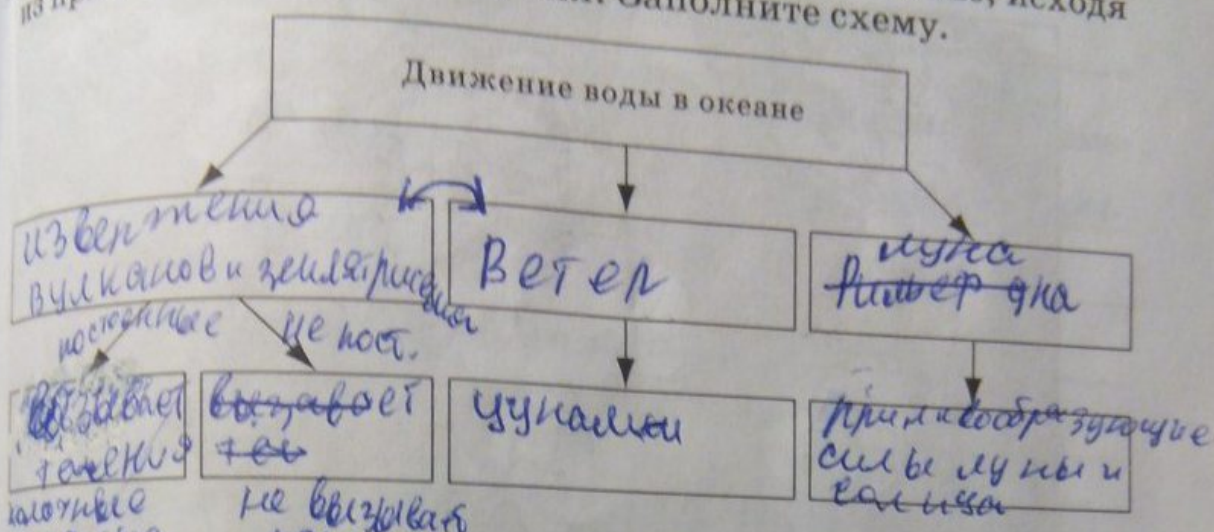 из
исходя
Заполните схему.
Движение воды в океане
извержения
вулканов и землятрисения
Ветер
луна
Рильеф дна
постоянные
не пост.
вызывает
течения
вызавает
теч
цунамии
приливообразующие
силы луны и
солнца
не вызывает